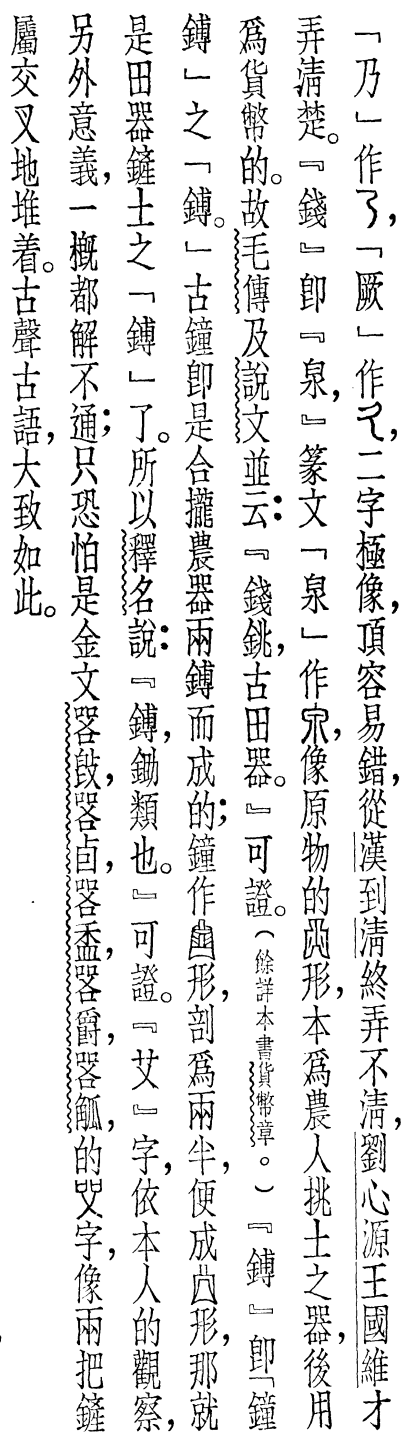 「乃」作，「厥」作，二字極像，頂容易錯，從漢到淸終弄不淸，劉心源王國維才
弄淸楚。『錢』卽『泉，』篆文「泉」作，像原物的形，本爲農人挑土之器，後用
爲貨幣的。故毛傳及說文並云：『錢銚，古田器。』可證。（餘詳本書貨幣章。）『鎛』卽「鐘
鎛」之「鎛。」古鐘卽是合攏農器兩鎛而成的；鐘作形，剖爲兩半，便成形，那就
是田器鏟土之「鎛」了。所以釋名說：『鎛，鋤類也。』可證。『艾』字，依本人的觀察，
另外意義，一槪都解不通；只恐怕是金文㠱，卣，盉，爵，觚，的字，像兩把鏟
屬交叉地堆着。古聲古語，大致如此。